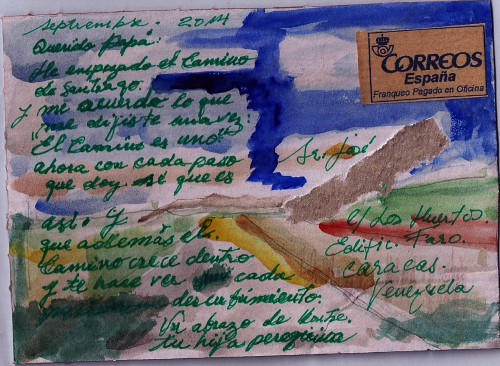 septiembre. 2014
Querido Papá:
He empezado el Camino
de Santiago.
y me acuerdo lo que
me dijiste una vez:
"El Camino es uno"
ahora con cada paso
que doy sé que es
así. Y
que además el
Camino crece dentro
y te hace ver cada
descubrimiento.
Un abrazo de
tu hija peregrina
CORREOS
España
Franqueo Pagado en Oficina
Sr. José
c/ Los Huertos.
Edific. Faro.
Caracas.
Venezuela